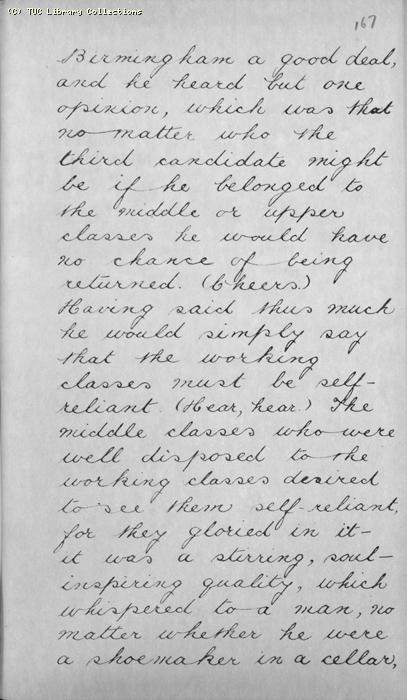 (C) TUC Library Collections
167
Birmingham a good deal,
and he heard but one
opinion, which was that
no matter who the
third candidate might
be if he belonged to
the middle or upper
classes he would have
no chance of being
returned. (Cheers.)
Having said thus much
he would simply say
that the working
classes must be self-
reliant. (Hear, hear.) The
middle classes who were
well disposed to the
working classes desired
to see them self-reliant,
for they gloried in it-
it was a stirring, soul-
inspiring quality, which
whispered to a man, no
matter whether he were
a shoemaker in a cellar,